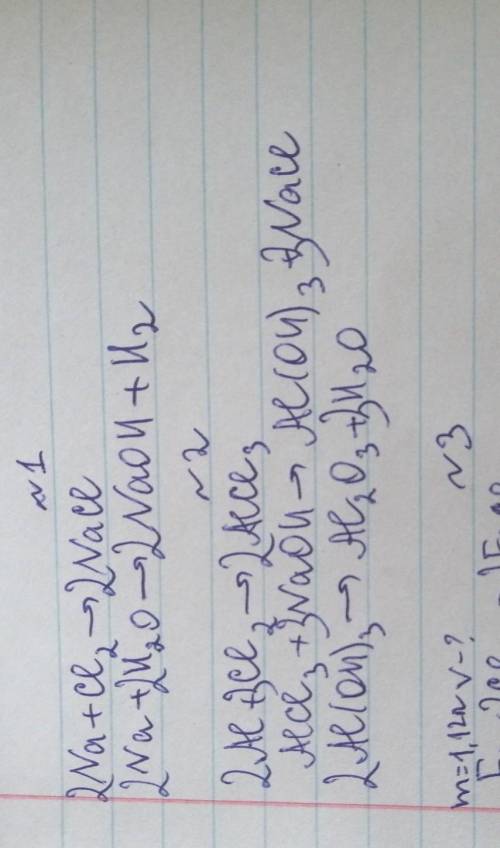 ~1
2Na+Cl₂→2NaCl
2Na+2H₂O→2NaOH+H₂
~2
2Al+3Cl₂→2AlCl₃
AlCl₃+3NaOH→Al(OH)₃+3NaCl
2Al(OH)₃→Al₂O₃+3H₂O
~3
m=1,12г V-?